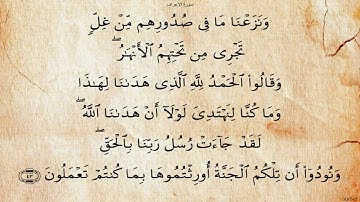 سورة الأعراف
وَنَزَعْنَا مَا فِى صُدُورِهِم مِّنْ غِلٍّ
تَجْرِى مِن تَحْتِهِمُ ٱلْأَنْهَـٰرُ ۖ
وَقَالُوا۟ ٱلْحَمْدُ لِلَّهِ ٱلَّذِى هَدَىٰنَا لِهَـٰذَا
وَمَا كُنَّا لِنَهْتَدِىَ لَوْلَآ أَنْ هَدَىٰنَا ٱللَّهُ ۖ
لَقَدْ جَآءَتْ رُسُلُ رَبِّنَا بِٱلْحَقِّ ۖ
وَنُودُوٓا۟ أَن تِلْكُمُ ٱلْجَنَّةُ أُورِثْتُمُوهَا بِمَا كُنتُمْ تَعْمَلُونَ ٤٣